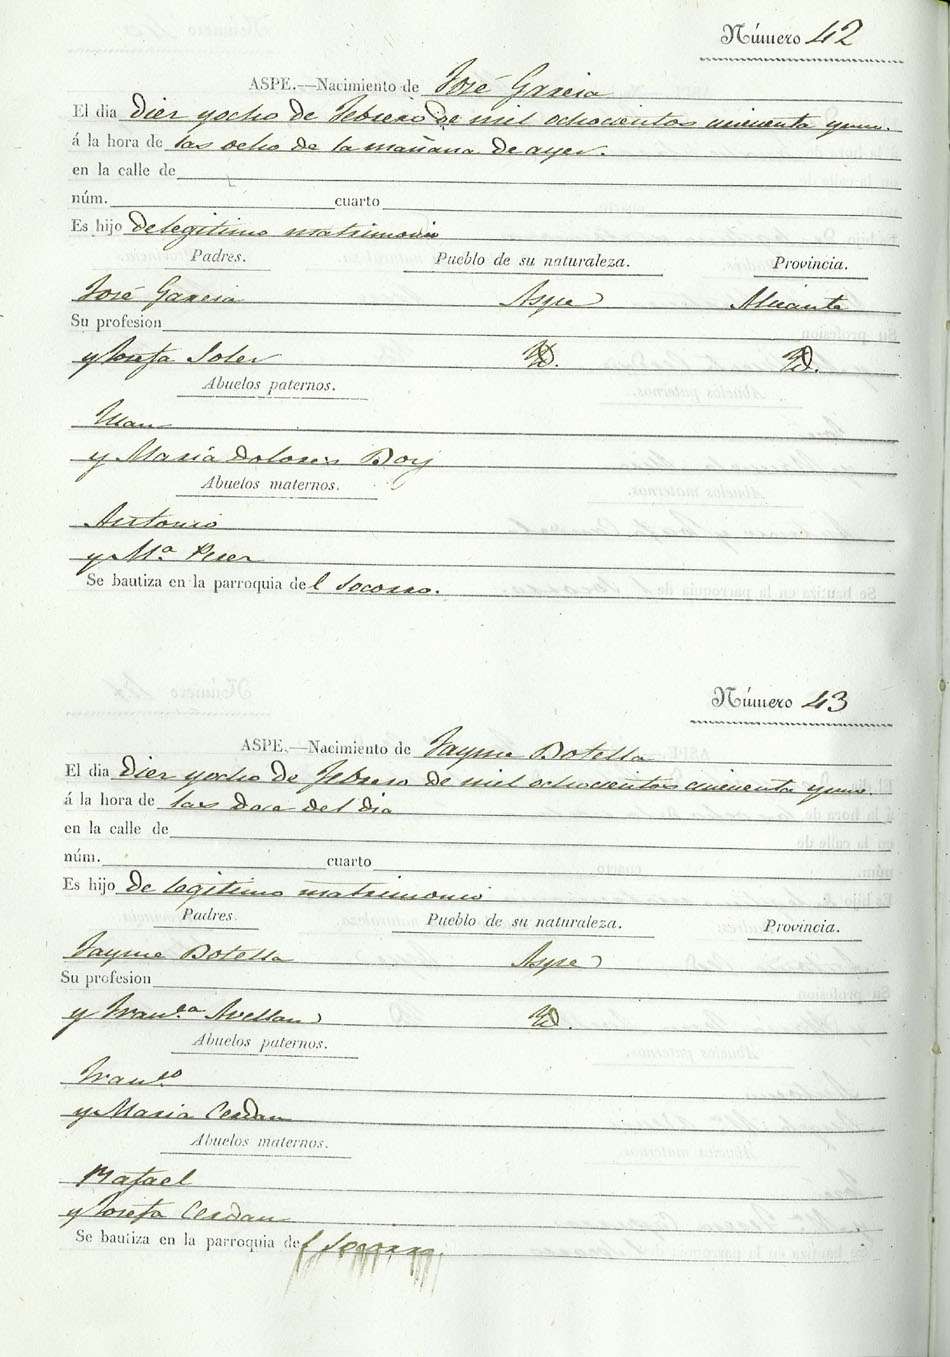 Número 42
ASPE.—Nacimiento de José Garcia
El dia diez y ocho de Febrero de mil ochocientos cincuenta y uno.
á la hora de las ocho de la mañana de ayer.
en la calle de
núm. cuarto
Es hijo de legitimo matrimonio
Padres. Pueblo de su naturaleza. Provincia.
José Garcia Aspe Alicante
Su profesion
y Josefa Soler Yd. Yd.
Abuelos paternos.
Juan
y Maria Dolores Boy
Abuelos maternos.
Antonio
y Mª Perez
Se bautiza en la parroquia del Socorro.
Número 43
ASPE.—Nacimiento de Jayme Botella
El dia diez y ocho de Febrero de mil ochocientos cincuenta y uno.
á la hora de las doce del dia
en la calle de
núm. cuarto
Es hijo de legitimo matrimonio
Padres. Pueblo de su naturaleza. Provincia.
Jayme Botella Aspe
Su profesion
y Franᶜª Avellan Yd.
Abuelos paternos.
Franᶜº
y Maria Cerdan
Abuelos maternos.
Rafael
y Josefa Cerdan
Se bautiza en la parroquia del Socorro.